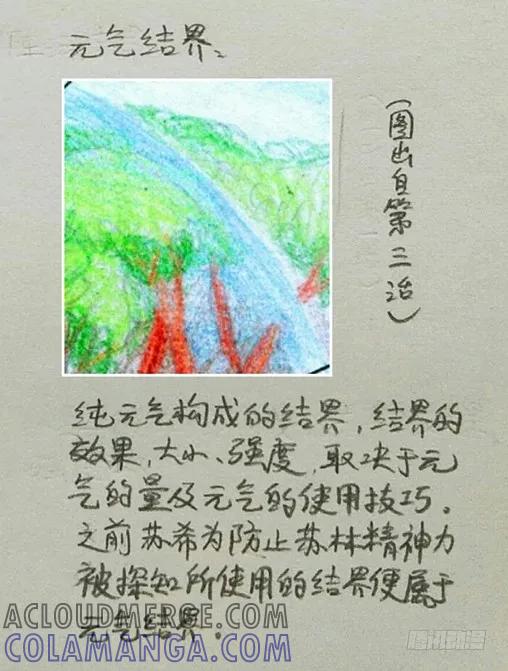 元气结界：
（图出自第三话）
纯元气构成的结界，结界的
效果，大小、强度，取决于元
气的量及元气的使用技巧。
之前苏希为防止苏林精神力
被探知所使用的结界便属于
元气结界。
ACLOUDMERGE.COM
COLAMANGA.COM
腾讯动漫